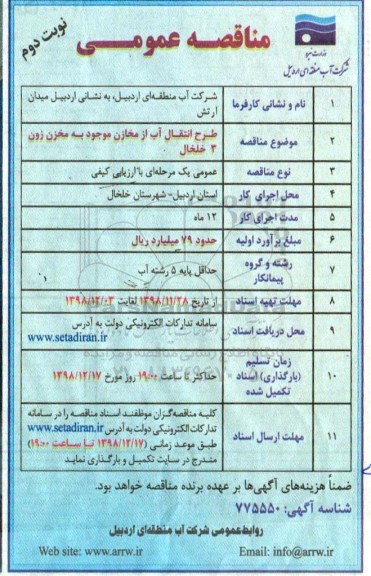 نوبت دوم
مناقصه عمومی
وزارت نیرو
شرکت آب منطقه ای اردبیل
۱ نام و نشانی کارفرما شرکت آب منطقه‌ای اردبیل، به نشانی اردبیل میدان
ارتش
۲ موضوع مناقصه طرح انتقال آب از مخازن موجود به مخزن زون
۳ خلخال
۳ نوع مناقصه عمومی یک مرحله‌ای با ارزیابی کیفی
۴ محل اجرای کار استان اردبیل- شهرستان خلخال
۵ مدت اجرای کار ۱۲ ماه
۶ مبلغ برآورد اولیه حدود ۷۹ میلیارد ریال
۷ رشته و گروه
پیمانکار حداقل پایه ۵ رشته آب
۸ مهلت تهیه اسناد از تاریخ ۱۳۹۸/۱۱/۲۸ لغایت ۱۳۹۸/۱۲/۰۳
۹ محل دریافت اسناد سامانه تدارکات الکترونیکی دولت به آدرس
www.setadiran.ir
۱۰ زمان تسلیم
(بارگذاری) اسناد
تکمیل شده حداکثر تا ساعت ۱۹:۰۰ روز مورخ ۱۳۹۸/۱۲/۱۷
۱۱ مهلت ارسال اسناد کلیه مناقصه‌گران موظفند اسناد مناقصه را در سامانه
تدارکات الکترونیکی دولت به آدرس www.setadiran.ir
طبق موعد زمانی (۱۳۹۸/۱۲/۱۷ تا ساعت ۱۹:۰۰)
مندرج در سایت تکمیل و بارگذاری نماید
ضمناً هزینه‌های آگهی‌ها بر عهده برنده مناقصه خواهد بود.
شناسه آگهی: ۷۷۵۵۵۰
روابط عمومی شرکت آب منطقه‌ای اردبیل
Web site: www.arrw.ir Email: info@arrw.ir